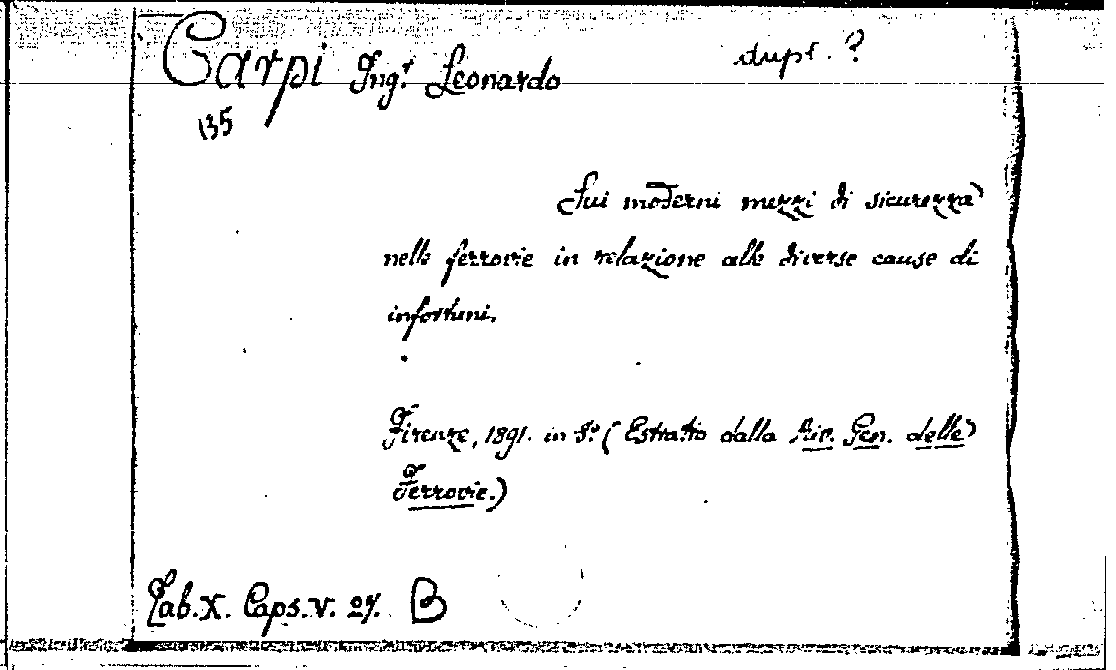 Carpi Ing.r Leonardo
dupl. ?
135
Sui moderni mezzi di sicurezza
nelle ferrovie in relazione alle diverse cause di
infortuni.
Firenze, 1891. in 8.o (Estratto dalla Riv. Gen. delle
Ferrovie.)
Lab. X. Caps. V. 27. B